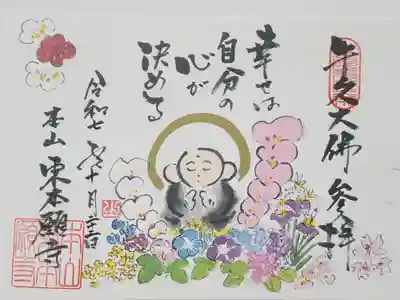 牛久大佛 参拝
幸せは
自分の
心が
決める
令和七年十月十二日
本山 東本願寺